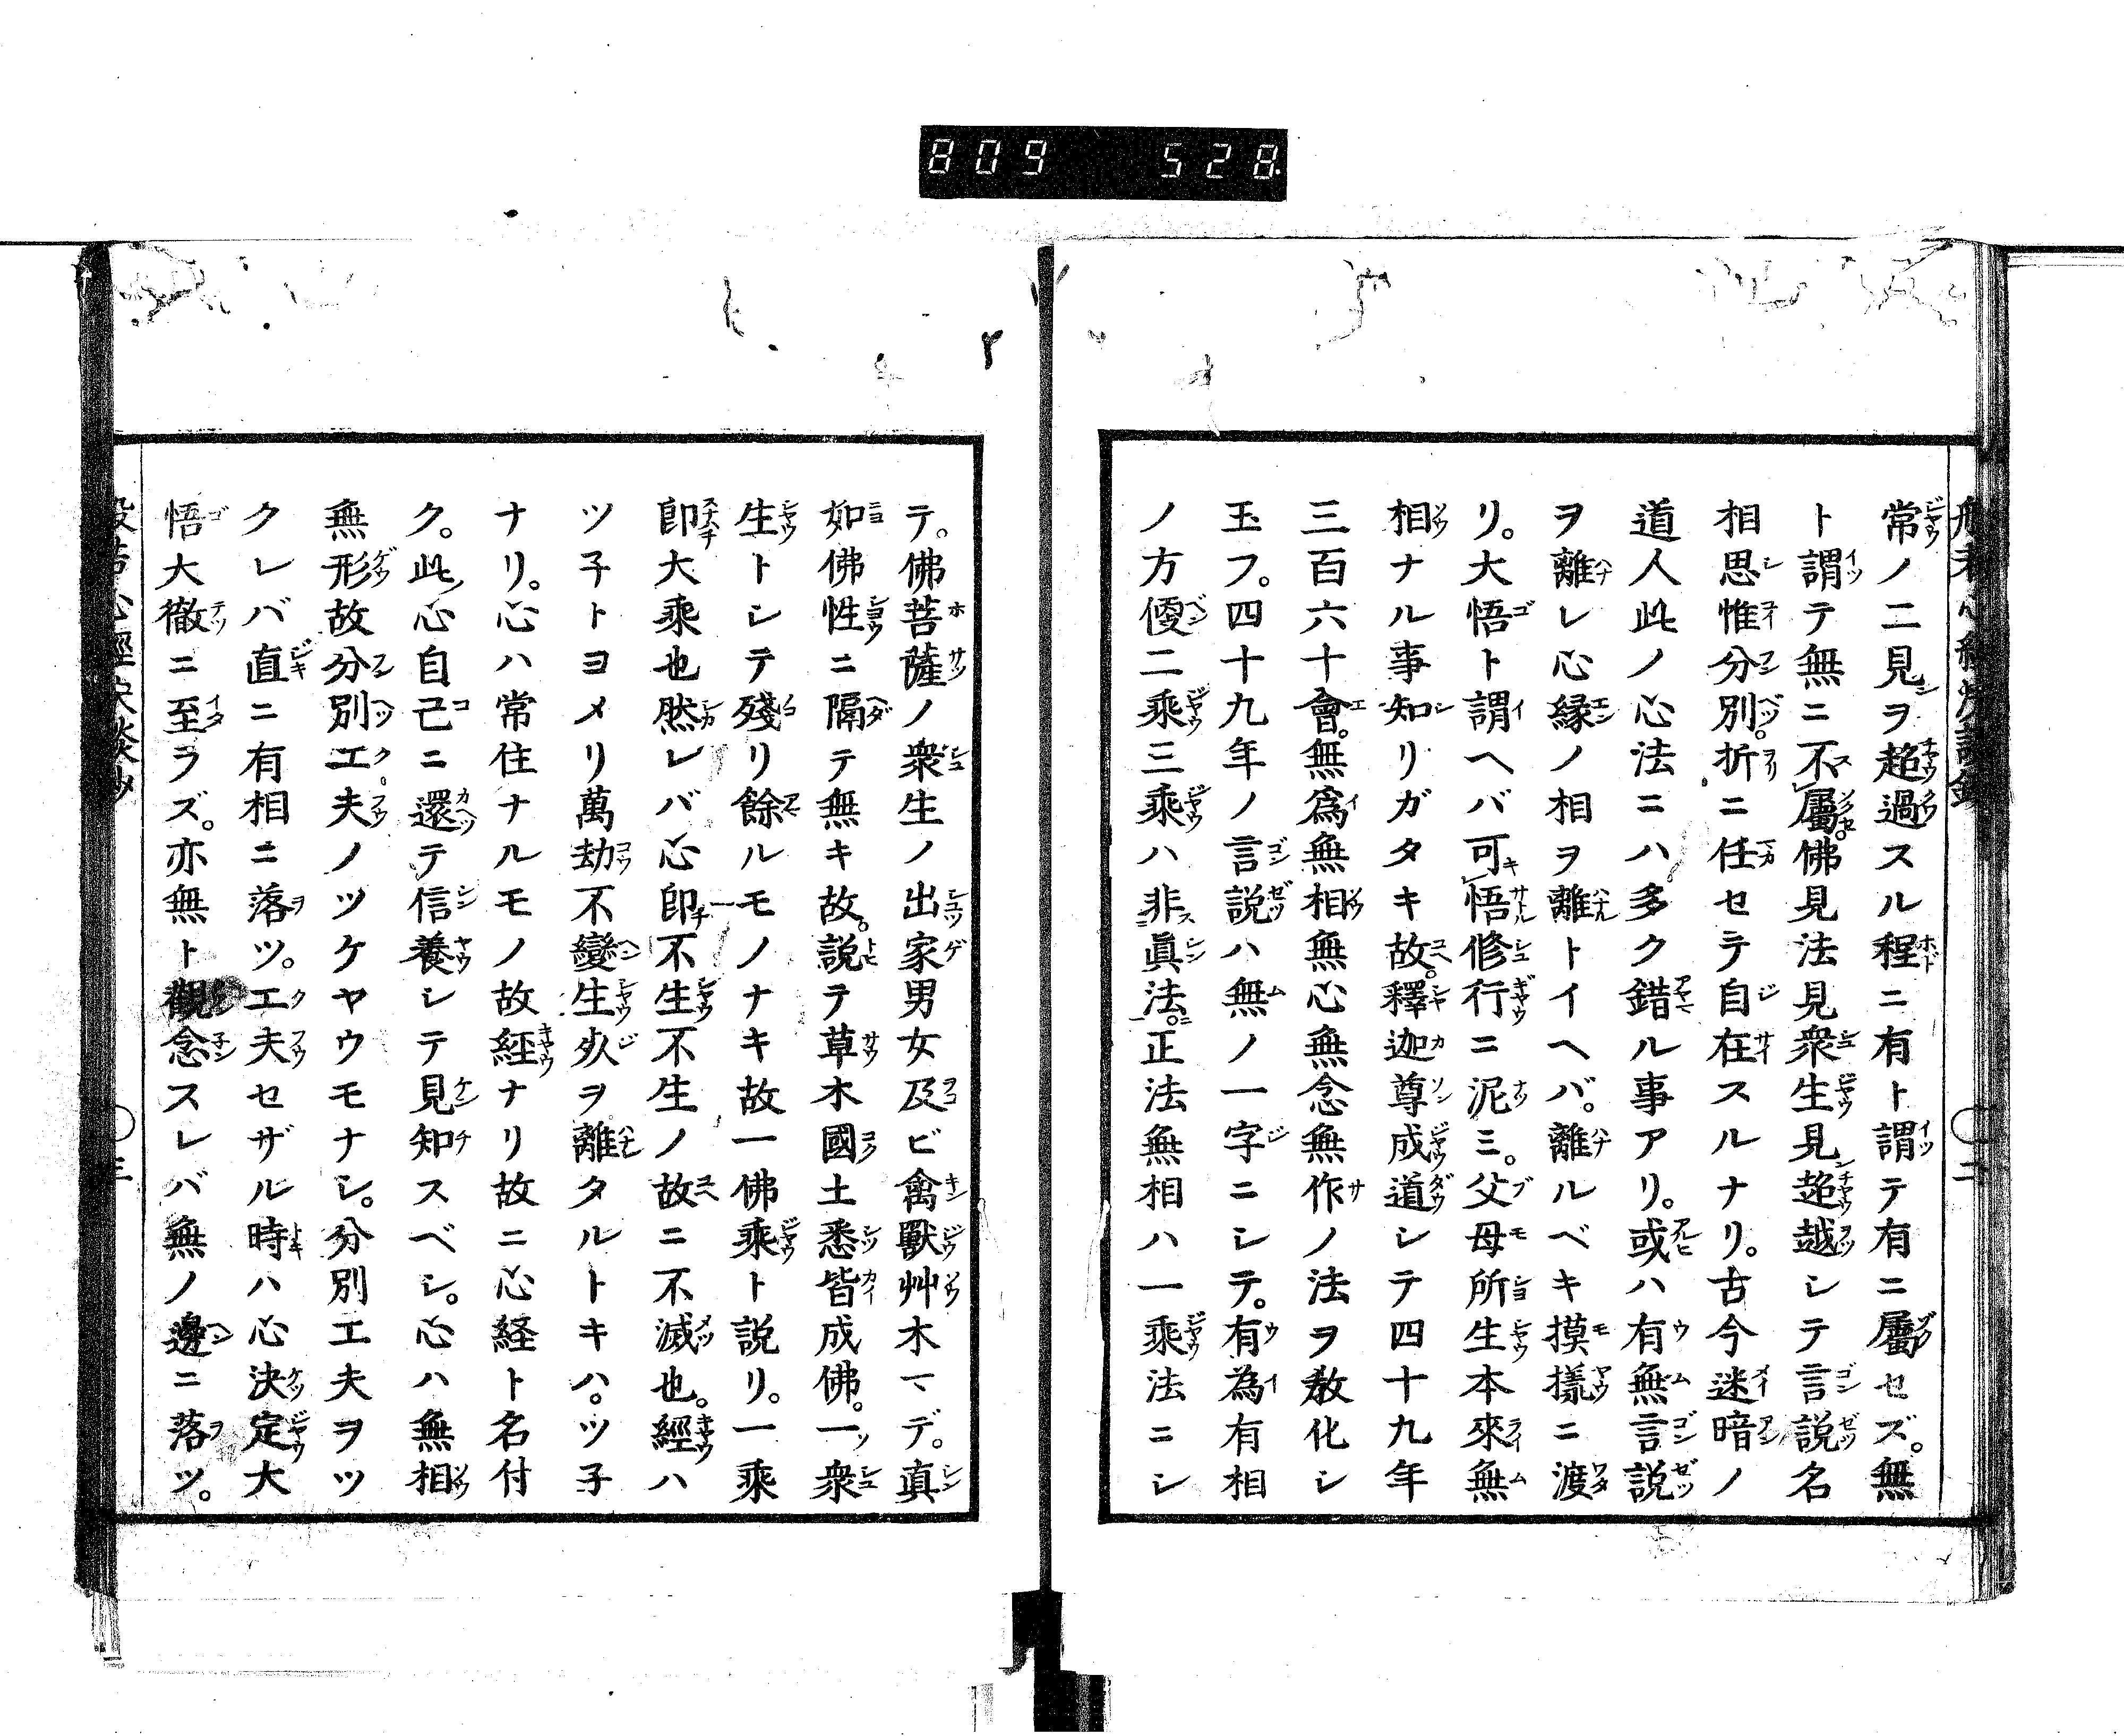 809 528
常ノ二見ヲ超過スル程ニ有ト謂テ有ニ屬セズ。無
ト謂テ無ニ不屬。佛見法見衆生見超越シテ言説名
相思惟分別。折ニ任セテ自在スルナリ。古今迷暗ノ
道人此ノ心法ニハ多ク錯ル事アリ。或ハ有無言説
ヲ離レ心縁ノ相ヲ離トイヘバ。離ルベキ摸樣ニ渡
リ。大悟ト謂ヘバ可悟修行ニ泥ミ。父母所生本來無
相ナル事知リガタキ故。釋迦尊成道シテ四十九年
三百六十會。無爲無相無心無念無作ノ法ヲ敎化シ
玉フ。四十九年ノ言説ハ無ノ一字ニシテ。有為有相
ノ方便二乘三乘ハ非眞法。正法無相ハ一乘法ニシ
テ。佛菩薩ノ衆生ノ出家男女及ビ禽獸艸木マデ。眞
如佛性ニ隔テ無キ故。説テ草木國土悉皆成佛。一衆
生トシテ殘リ餘ルモノナキ故一佛乘ト説リ。一乘
即大乘也然レバ心即不生不生ノ故ニ不滅也。經ハ
ツ子トヨメリ萬劫不變生死ヲ離タルトキハ。ツ子
ナリ。心ハ常住ナルモノ故經ナリ故ニ心経ト名付
ク。此心自己ニ還テ信養シテ見知スベシ。心ハ無相
無形故分別工夫ノツケヤウモナシ。分別工夫ヲツ
クレバ直ニ有相ニ落ツ。工夫セザル時ハ心決定大
悟大徹ニ至ラズ。亦無ト觀念スレバ無ノ邊ニ落ツ。